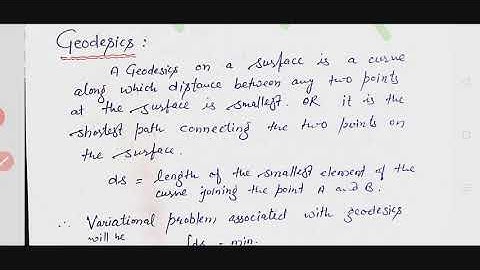 Geodesics :
A Geodesics on a surface is a curve
along which distance between any two points
at the surface is smallest. OR it is the
shortest path connecting the two points on
the surface.
ds = length of the smallest element of the
curve joining the point A and B.
∴ Variational problem, associated with geodesics
will be ∫ds = min.